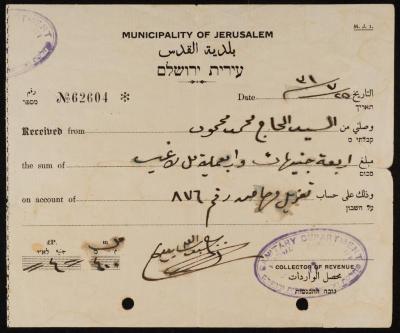 M. J. 1.
MUNICIPALITY OF JERUSALEM
بلدية القدس
עירית ירושלם
رقم
מספר
№ 62604 *
Date ٢٥ ٧ ٣١ التاريخ
תאריך
Received from السيد الحاج محمد محمود وصلني من
קבלתי מ
the sum of اربعة جنيهات واربعماية مل لا غير مبلغ
סכום
on account of رقم ٨٧٦ وذلك على حساب
על חשבון
£P.
COLLECTOR OF REVENUE
محصل الواردات
גובה ההכנסות
SANITARY DEPARTMENT